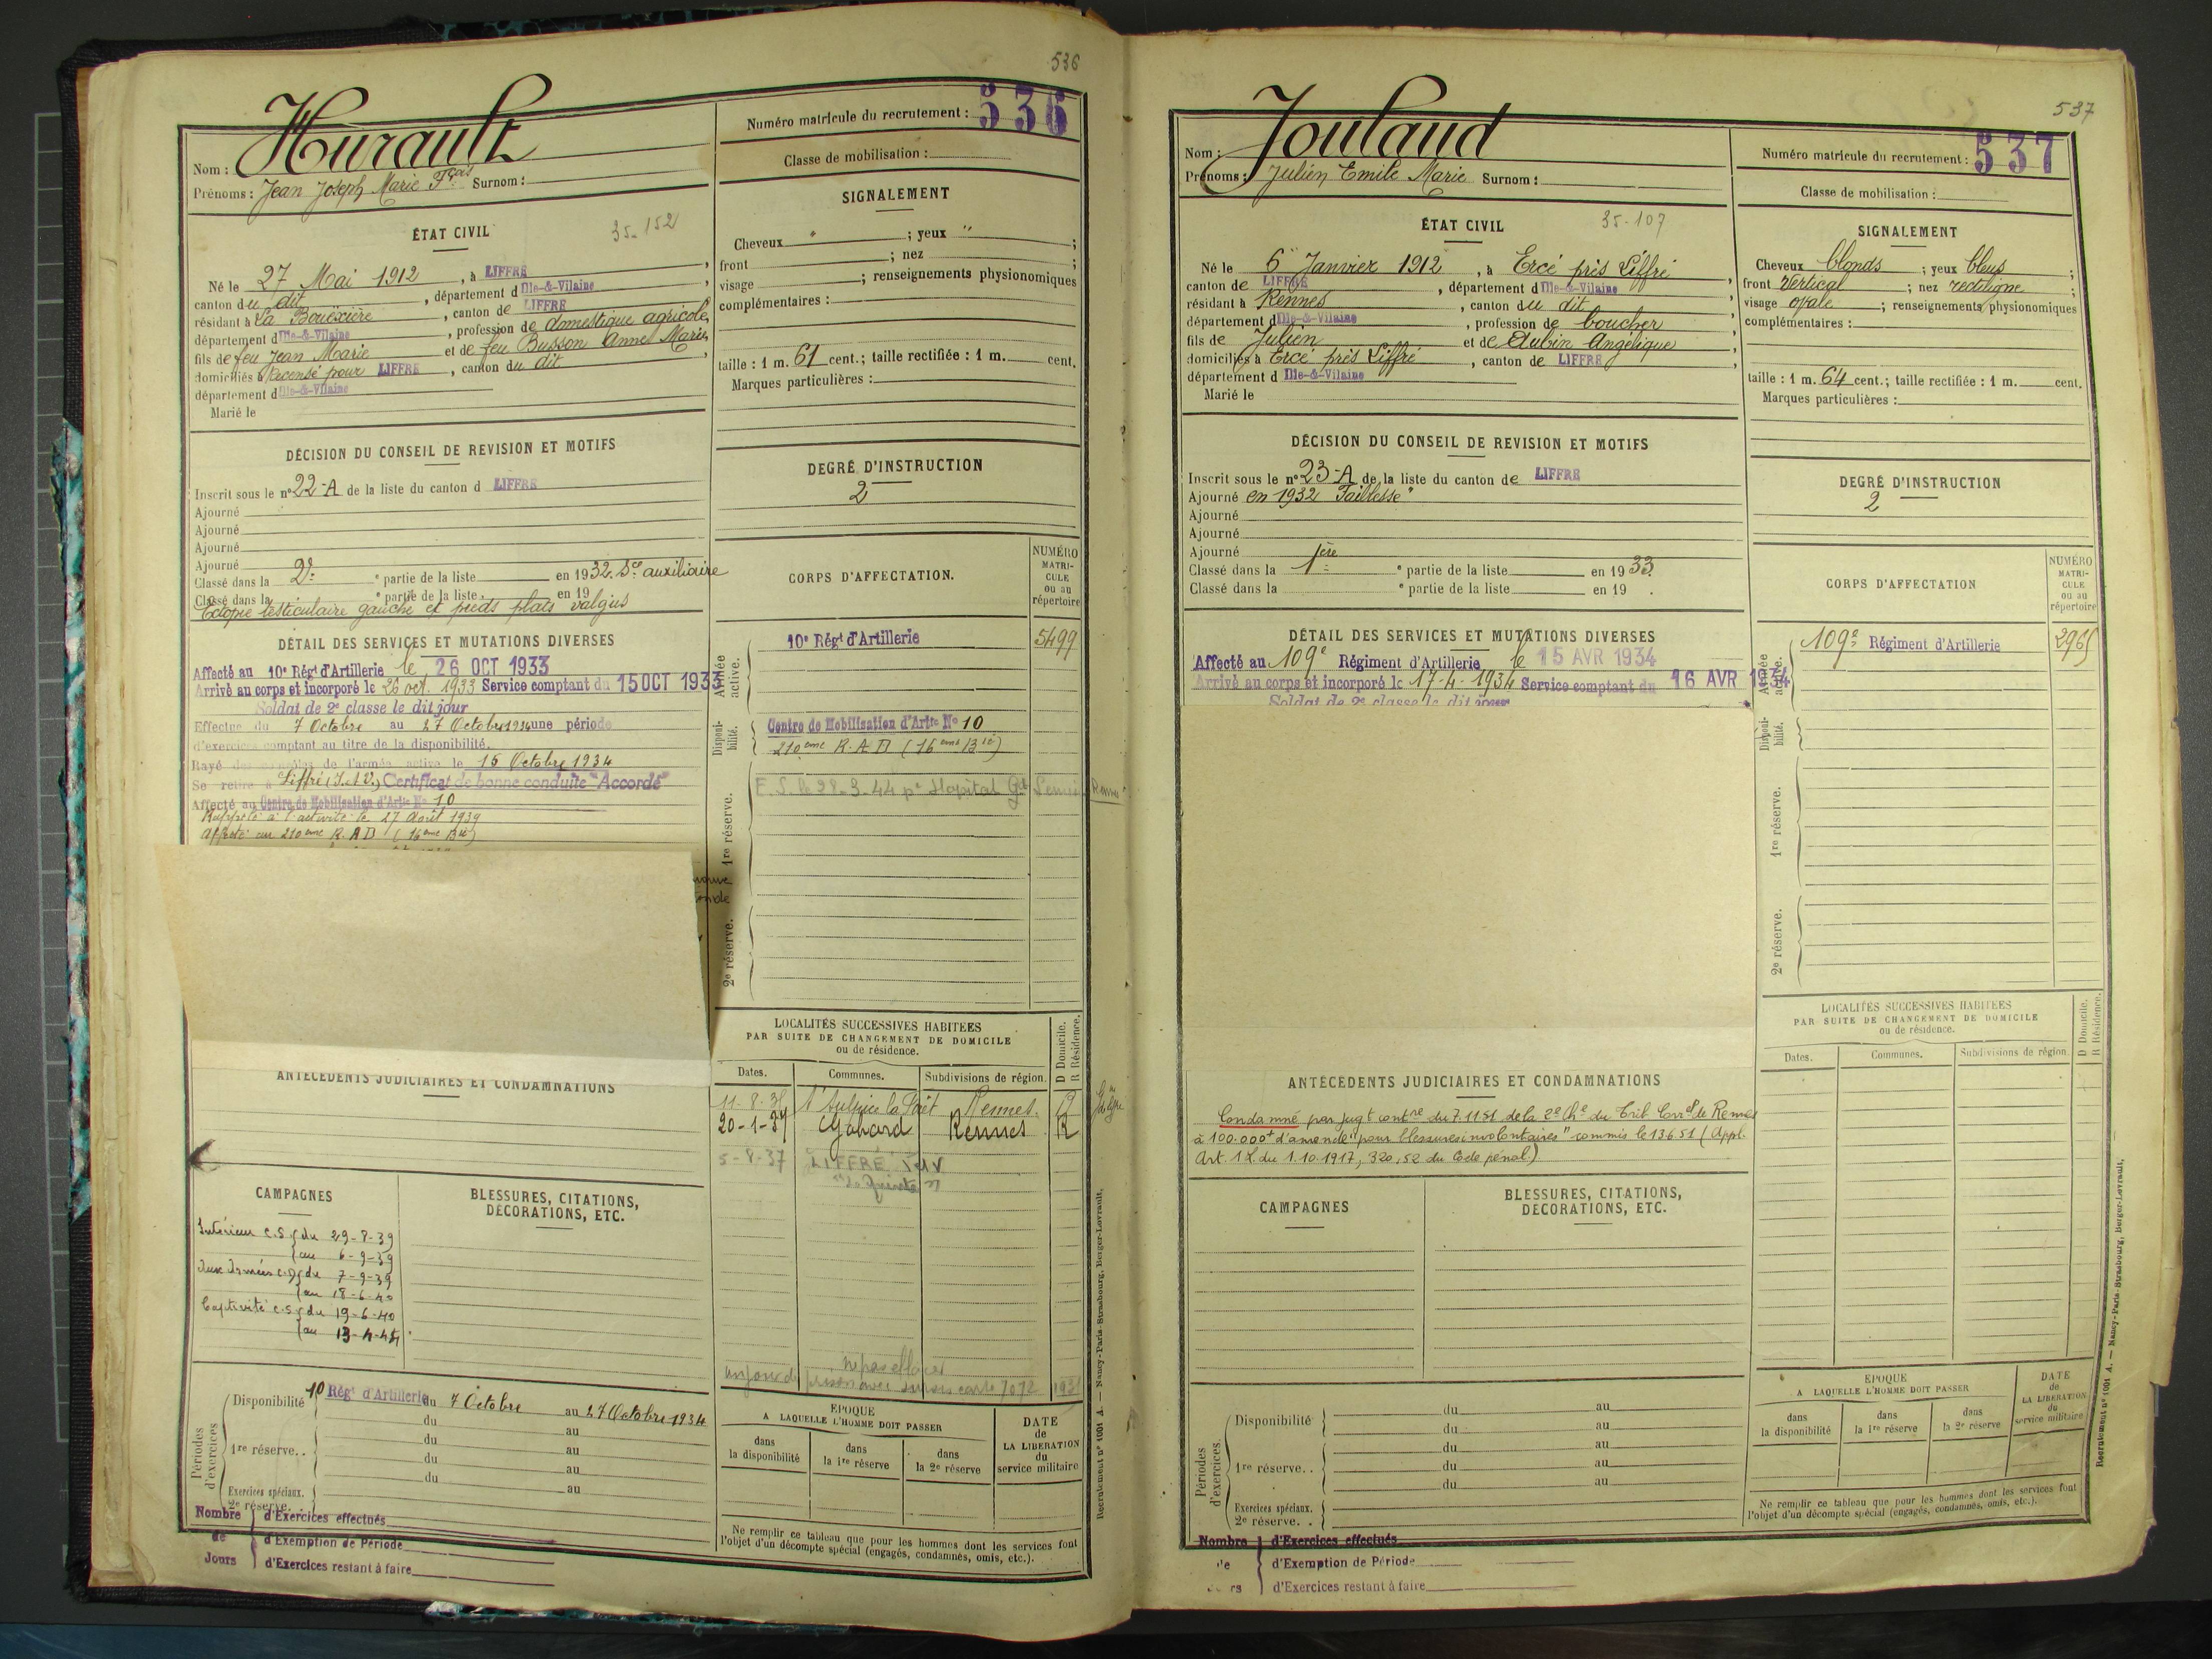 536
Nom : Hurault
Prénoms : Jean Joseph Marie Fçois Surnom :
Numéro matricule du recrutement : 536
Classe de mobilisation :
ÉTAT CIVIL
35-152
Né le 27 Mai 1912, à LIFFRÉ,
canton du dit, département d'Ille-&-Vilaine,
résidant à La Bouëxière, canton de LIFFRE,
département d'Ille-&-Vilaine, profession de domestique agricole,
fils de feu Jean Marie et de feu Busson Anne Marie,
domiciliés à Recensé pour LIFFRE, canton du dit,
département d'Ille-&-Vilaine
Marié le
SIGNALEMENT
Cheveux " ; yeux " ;
front ; nez ;
visage ; renseignements physionomiques
complémentaires :
taille : 1 m. 61 cent.; taille rectifiée : 1 m. cent.
Marques particulières :
DÉCISION DU CONSEIL DE REVISION ET MOTIFS
Inscrit sous le n° 22-A de la liste du canton d LIFFRE
Ajourné
Ajourné
Ajourné
Ajourné
Classé dans la 2e partie de la liste en 1932. Sce auxiliaire
Classé dans la e partie de la liste en 19
Ectopie testiculaire gauche et pieds plats valgus
DEGRÉ D'INSTRUCTION
2
CORPS D'AFFECTATION.
NUMÉRO MATRI-CULE ou au répertoire
DÉTAIL DES SERVICES ET MUTATIONS DIVERSES
Affecté au 10e Régt d'Artillerie le 26 OCT 1933
Arrivé au corps et incorporé le 26 oct. 1933 Service comptant du 15 OCT 1933
Soldat de 2e classe le dit jour
Effectue du 7 Octobre au 27 Octobre 1934 une période
d'exercices comptant au titre de la disponibilité.
Rayé des contrôles de l'armée active le 15 Octobre 1934
Se retire à Liffré (I.&V.) Certificat de bonne conduite "Accordé"
Affecté au Centre de Mobilisation d'Artie N° 10
Rappelé à l'activité le 27 Août 1939
Affecté au 210ème R.A.D (16ème Bie)
Armée active.
10e Régt d'Artillerie 5499
Disponibilité.
Centre de Mobilisation d'Artie N° 10
210ème R.A.D (16ème Bie)
1re réserve.
E.S. le 28-3-44 pr Hopital Gal Rennes
2e réserve.
LOCALITÉS SUCCESSIVES HABITÉES
PAR SUITE DE CHANGEMENT DE DOMICILE
ou de résidence.
D Domicile.
R Résidence.
Dates. Communes. Subdivisions de région.
20-1-37 Gahard Rennes R
5-8-37 LIFFRÉ I&V
ANTÉCÉDENTS JUDICIAIRES ET CONDAMNATIONS
CAMPAGNES
Intérieur c.s. du 29-8-39
au 6-9-39
Aux Armées c.D du 7-9-39
au 18-6-40
Captivité c.s. du 19-6-40
au 13-4-45
BLESSURES, CITATIONS,
DÉCORATIONS, ETC.
ne pas effacer
un jour de prison avec sursis carte 7072 193
Périodes d'exercices
Disponibilité 10 Régt d'Artillerie du 7 Octobre au 27 Octobre 1934
du au
1re réserve.. du au
du au
du au
Exercices spéciaux.
2e réserve. .
Nombre de Jours
d'Exercices effectués
d'Exemption de Période
d'Exercices restant à faire
ÉPOQUE
A LAQUELLE L'HOMME DOIT PASSER
dans la disponibilité
dans la 1re réserve
dans la 2e réserve
DATE de LA LIBÉRATION du service militaire
Ne remplir ce tableau que pour les hommes dont les services font
l'objet d'un décompte spécial (engagés, condamnés, omis, etc.).
Recrutement n° 1001 A. — Nancy-Paris-Strasbourg, Berger-Levrault.
537
Nom : Joulaud
Prénoms : Julien Emile Marie Surnom :
Numéro matricule du recrutement : 537
Classe de mobilisation :
ÉTAT CIVIL
35-107
Né le 6 Janvier 1912, à Ercé près Liffré,
canton de LIFFRE, département d'Ille-&-Vilaine,
résidant à Rennes, canton du dit,
département d'Ille-&-Vilaine, profession de boucher,
fils de Julien et de Aubin Angélique,
domiciliés à Ercé près Liffré, canton de LIFFRE,
département d Ille-&-Vilaine
Marié le
SIGNALEMENT
Cheveux blonds ; yeux bleus ;
front Vertical ; nez rectiligne ;
visage ovale ; renseignements physionomiques
complémentaires :
taille : 1 m. 64 cent.; taille rectifiée : 1 m. cent.
Marques particulières :
DÉCISION DU CONSEIL DE REVISION ET MOTIFS
Inscrit sous le n° 23-A de la liste du canton de LIFFRE
Ajourné en 1932 "Faiblesse"
Ajourné
Ajourné
Ajourné
Classé dans la 1ère partie de la liste en 1933.
Classé dans la e partie de la liste en 19 .
DEGRÉ D'INSTRUCTION
2
CORPS D'AFFECTATION
NUMÉRO MATRI-CULE ou au répertoire
DÉTAIL DES SERVICES ET MUTATIONS DIVERSES
Affecté au 109e Régiment d'Artillerie le 15 AVR 1934
Arrivé au corps et incorporé le 17-4-1934 Service comptant du 16 AVR 1934
Soldat de 2e classe le dit jour
Armée active.
109e Régiment d'Artillerie 2965
Disponibilité.
1re réserve.
2e réserve.
LOCALITÉS SUCCESSIVES HABITÉES
PAR SUITE DE CHANGEMENT DE DOMICILE
ou de résidence.
D Domicile.
R Résidence.
Dates. Communes. Subdivisions de région.
ANTÉCÉDENTS JUDICIAIRES ET CONDAMNATIONS
Condamné par jugt contre du 7.11.51 de la 2e Che du Trib. Correl de Rennes
à 100.000f d'amende "pour blessures involontaires" commis le 13.6.51 (Appl.
Art. 1 L. du 1.10.1917, 320, 52 du Code pénal.)
CAMPAGNES
BLESSURES, CITATIONS,
DÉCORATIONS, ETC.
Périodes d'exercices.
Disponibilité du au
du au
1re réserve. . du au
du au
du au
Exercices spéciaux.
2e réserve. .
Nombre
d'Exercices effectués
d'Exemption de Période
d'Exercices restant à faire
ÉPOQUE
A LAQUELLE L'HOMME DOIT PASSER
dans la disponibilité
dans la 1re réserve
dans la 2e réserve
DATE de LA LIBÉRATION du service militaire
Ne remplir ce tableau que pour les hommes dont les services font
l'objet d'un décompte spécial (engagés, condamnés, omis, etc.).
Recrutement n° 1001 A. — Nancy-Paris-Strasbourg, Berger-Levrault.